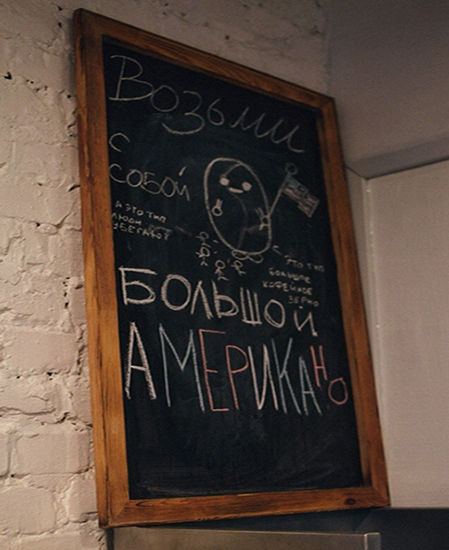 Возьми
с
собой
а это тип
люди
убегают
← это тип
большое
кофейное
зерно
БОЛЬШОЙ
АМЕРИКАНО